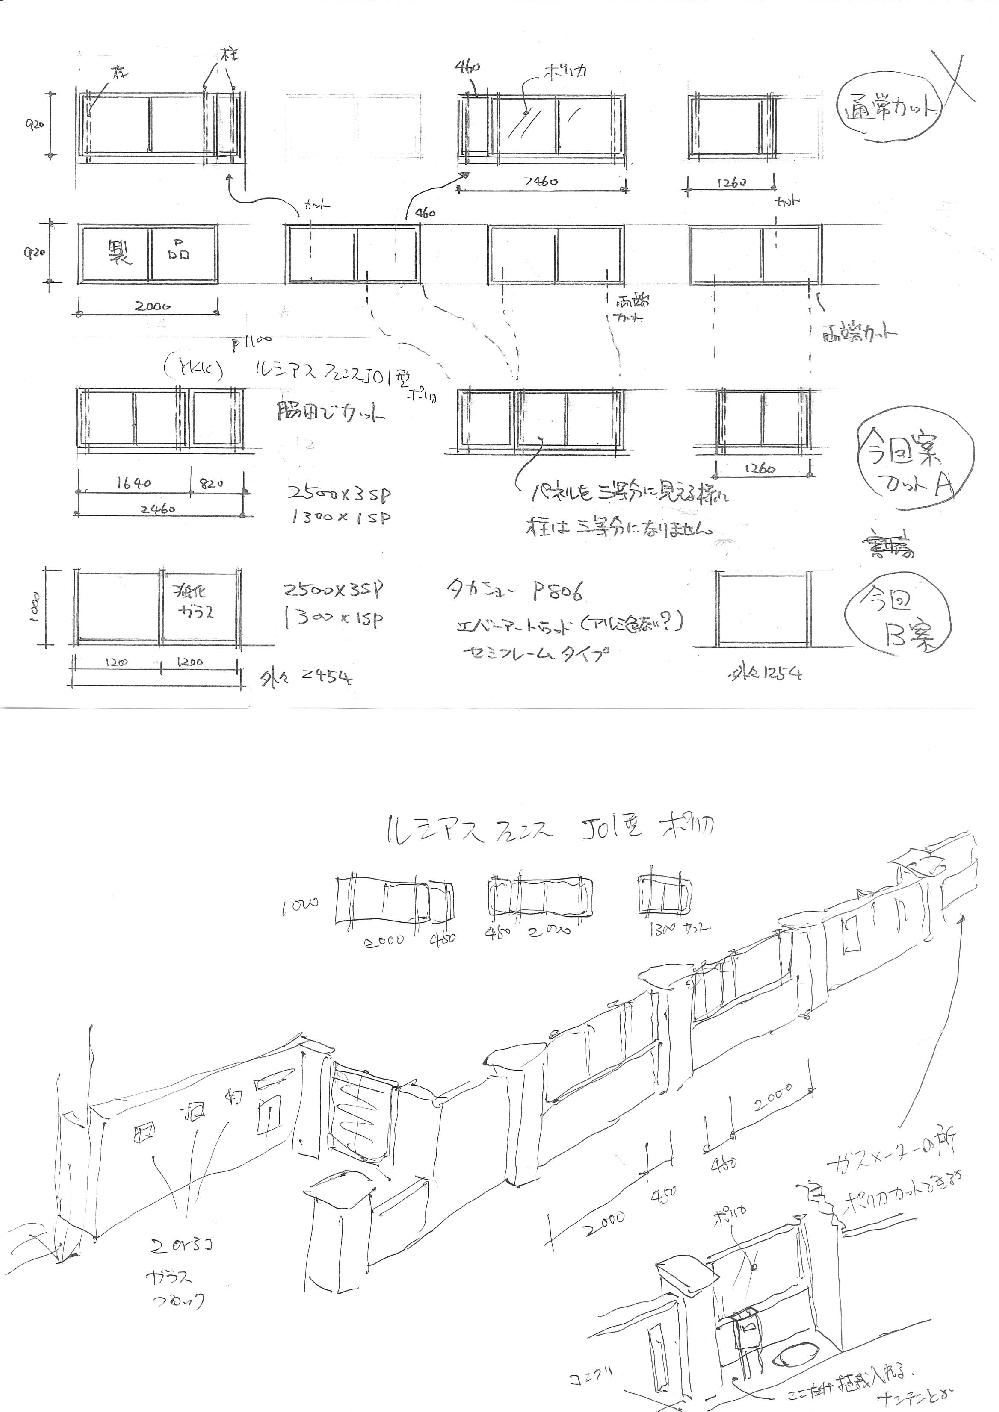 柱
柱
460
ポリカ
通常カット
X
920
2460
1260
カット
460
カット
920
製品
2000
両端カット
両端カット
P1100
(YKK) ルミアス フェンスJ01型 ポリカ
脇田でカット
今回案
カットA
1640
820
2460
2500×3SP
1300×1SP
パネルを三等分に見える様に
柱は三等分になりません
1260
1000
強化
ガラス
2500×3SP
1300×1SP
タカショー P806
エバーアートウッド(アルミ色ない?)
セミフレームタイプ
今回
B案
1200
1200
外々 2454
外々1254
ルミアス フェンス J01型 ポリカ
1000
2000
460
460
2000
1300 カット
2000
460
460
2000
2 or 3コ
ガラス
ブロック
ガスメーターの所
ポリカ
ここだけ植栽入れる
ナンテンとか